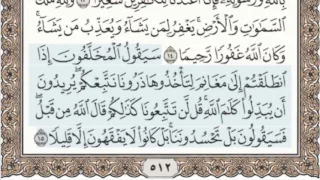 بِٱللَّهِ وَرَسُولِهِۦ فَإِنَّآ أَعۡتَدۡنَا لِلۡكَٰفِرِينَ سَعِيرٗا ١٣ وَلِلَّهِ مُلۡكُ
ٱلسَّمَٰوَٰتِ وَٱلۡأَرۡضِۚ يَغۡفِرُ لِمَن يَشَآءُ وَيُعَذِّبُ مَن يَشَآءُۚ
وَكَانَ ٱللَّهُ غَفُورٗا رَّحِيمٗا ١٤ سَيَقُولُ ٱلۡمُخَلَّفُونَ إِذَا
ٱنطَلَقۡتُمۡ إِلَىٰ مَغَانِمَ لِتَأۡخُذُوهَا ذَرُونَا نَتَّبِعۡكُمۡۖ يُرِيدُونَ
أَن يُبَدِّلُواْ كَلَٰمَ ٱللَّهِۚ قُل لَّن تَتَّبِعُونَا كَذَٰلِكُمۡ قَالَ ٱللَّهُ مِن قَبۡلُۖ
فَسَيَقُولُونَ بَلۡ تَحۡسُدُونَنَاۚ بَلۡ كَانُواْ لَا يَفۡقَهُونَ إِلَّا قَلِيلٗا ١٥
٥١٢